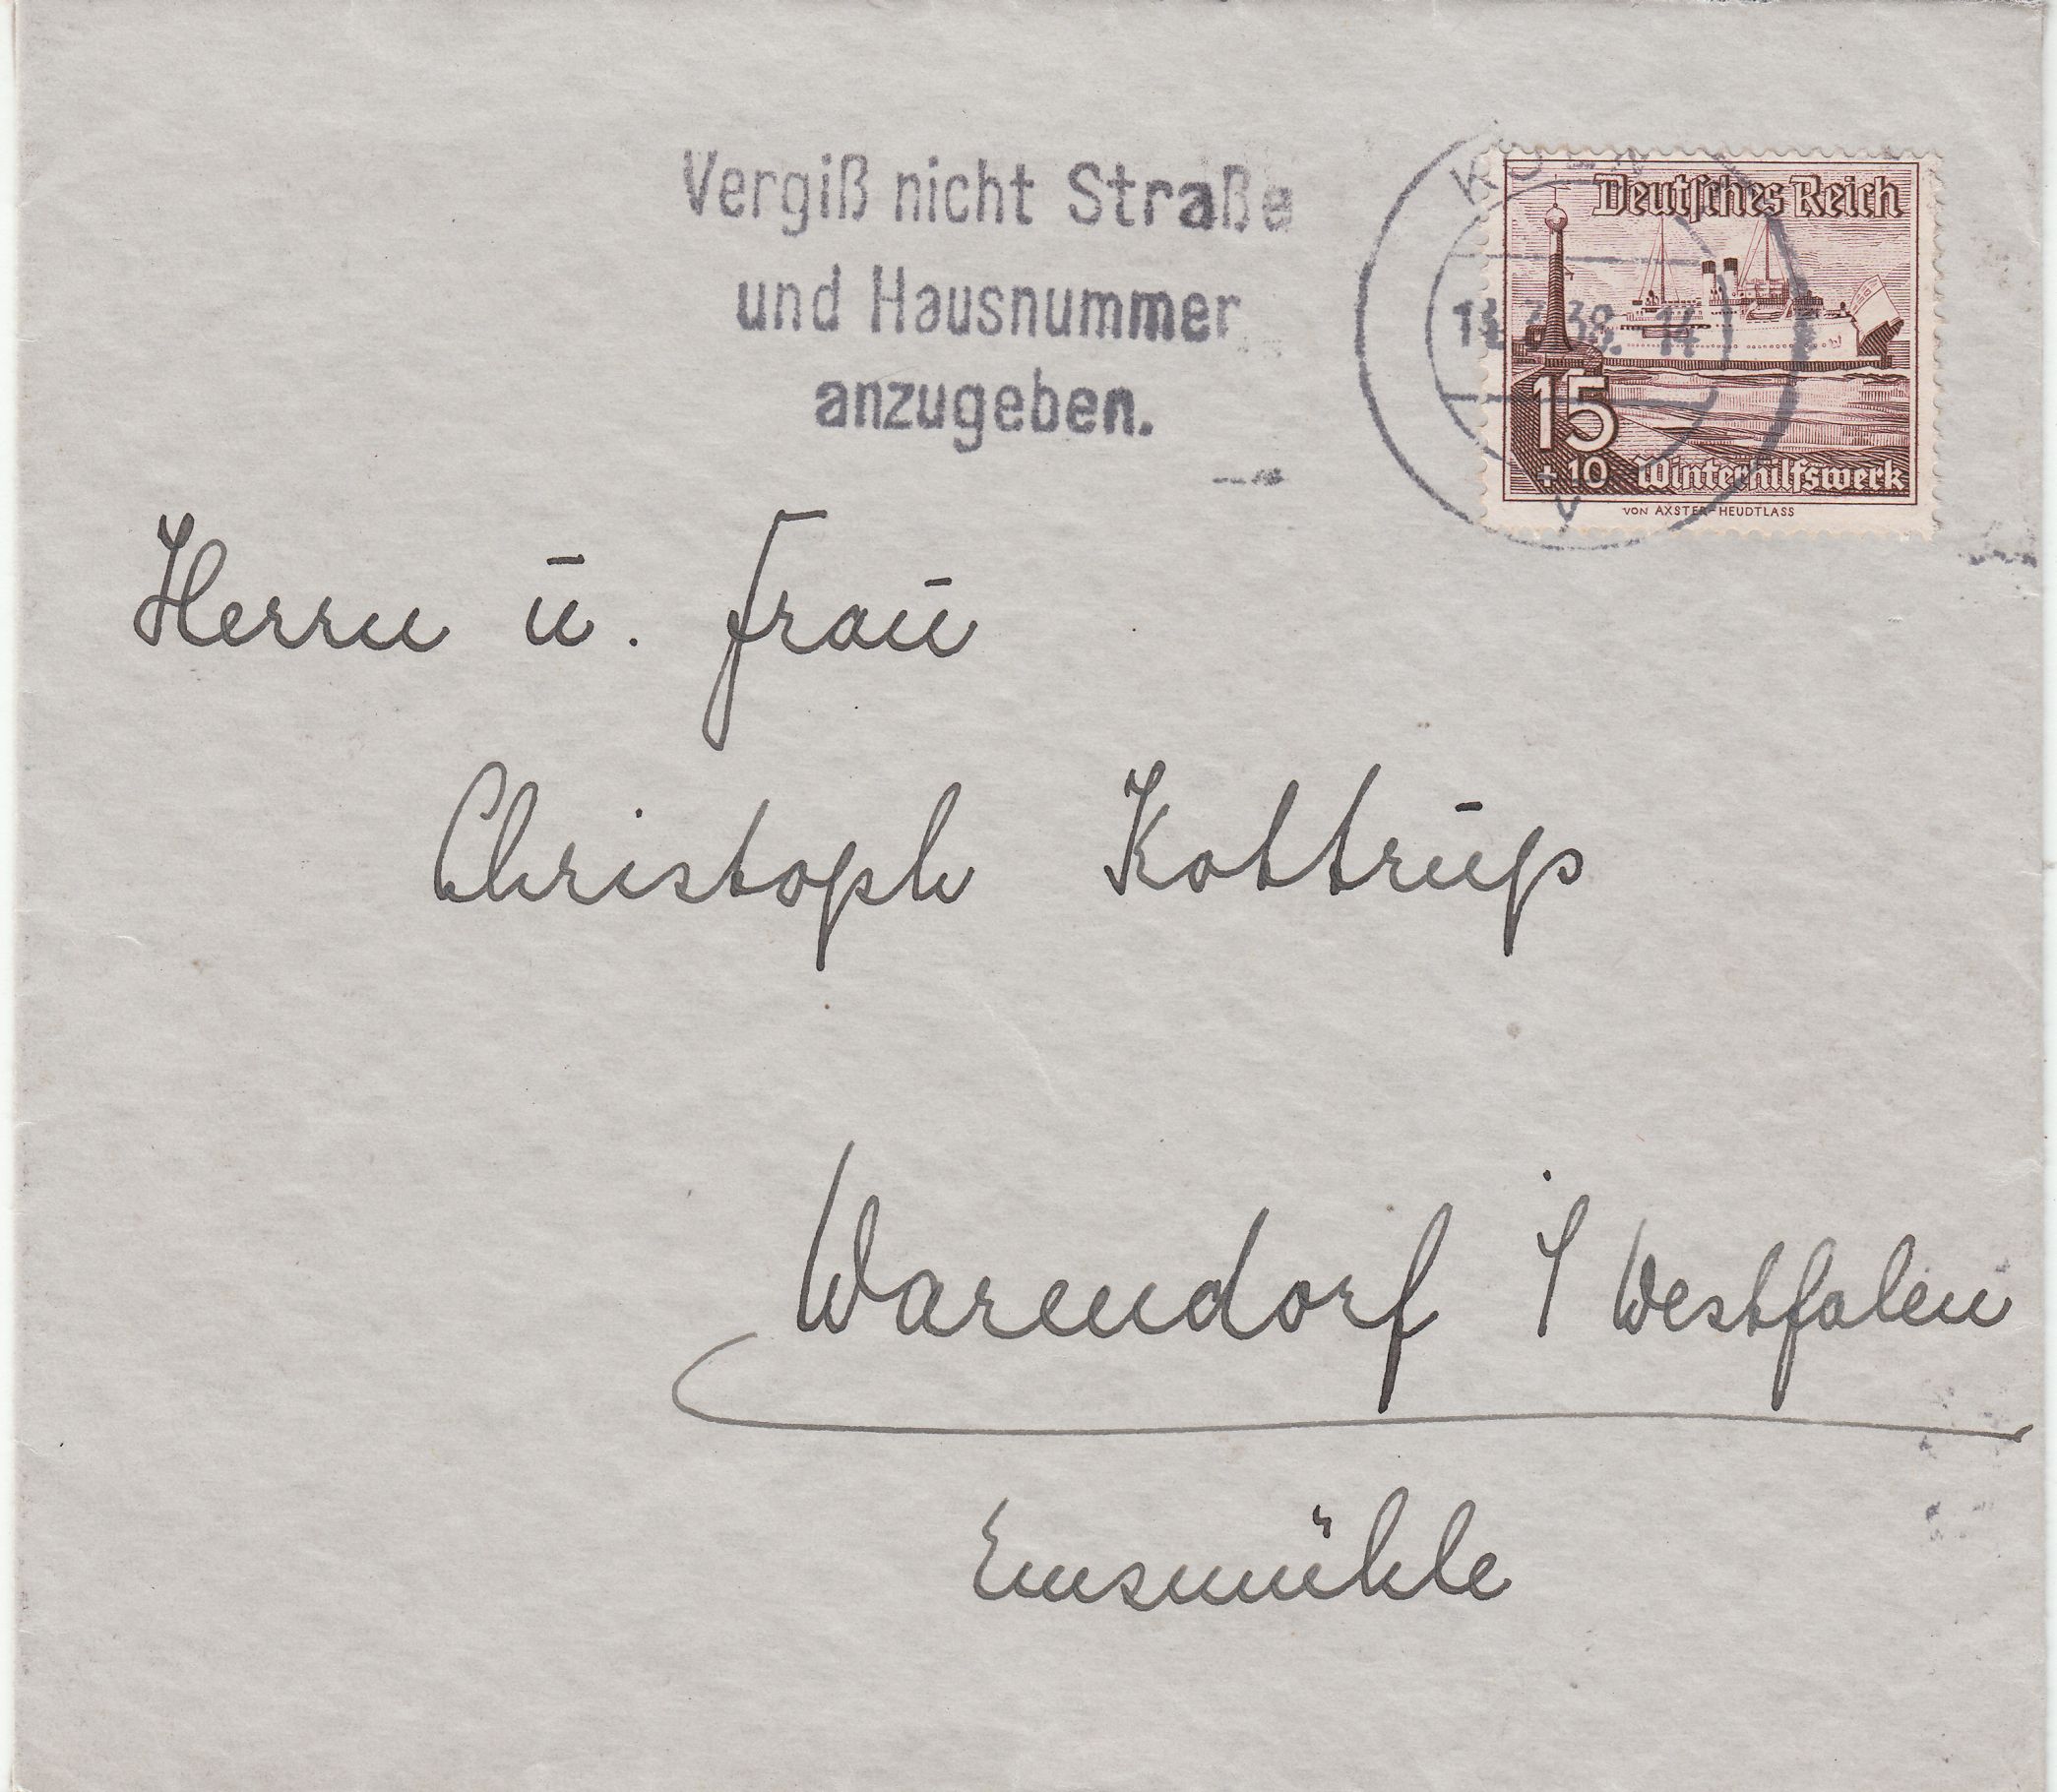 Vergiß nicht Straße
und Hausnummer
anzugeben.
Deutsches Reich
38. 14
15
+ 10 Winterhilfswerk
VON AXSTER-HEUDTLASS
V
Herrn u. Frau
Christoph Kottrup
Warendorf i/ Westfalen
Emsmühle